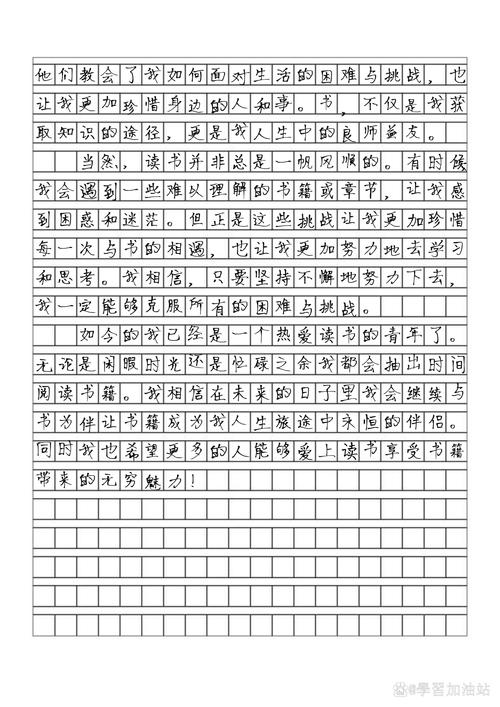 他们教会了我如何面对生活的困难与挑战，也
让我更加珍惜身边的人和事。书，不仅是我获
取知识的途径，更是我人生中的良师益友。
当然，读书并非总是一帆风顺的。有时候
我会遇到一些难以理解的书籍或章节，让我感
到困惑和迷茫。但正是这些挑战让我更加珍惜
每一次与书的相遇，也让我更加努力地去学习
和思考。我相信，只要坚持不懈地努力下去，
我一定能够克服所有的困难与挑战。
如今的我已经是一个热爱读书的青年了。
无论是闲暇时光还是忙碌之余我都会抽出时间
阅读书籍。我相信在未来的日子里我会继续与
书为伴让书籍成为我人生旅途中永恒的伴侣。
同时我也希望更多的人能够爱上读书享受书籍
带来的无穷魅力！
@學習加油站